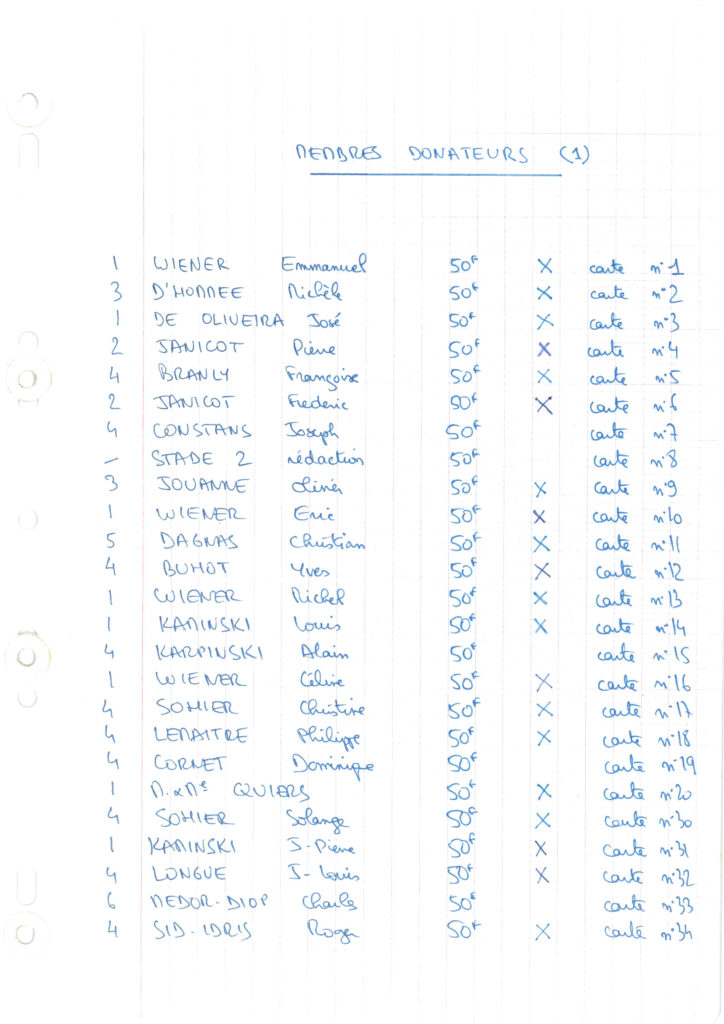 MEMBRES DONATEURS (1)
1 WIENER Emmanuel 50F X carte n°1
3 D'HOMMEE Michèle 50F X carte n°2
1 DE OLIVEIRA José 50F X carte n°3
2 JANICOT Pierre 50F X carte n°4
4 BRANLY Françoise 50F X carte n°5
2 JANICOT Frederic 50F X carte n°6
4 CONSTANS Joseph 50F carte n°7
- STADE 2 rédaction 50F carte n°8
3 JOUANNE Olivier 50F X carte n°9
1 WIENER Eric 50F X carte n°10
5 DAGNAS Christian 50F X carte n°11
4 BUHOT Yves 50F X carte n°12
1 WIENER Michel 50F X carte n°13
1 KAMINSKI Louis 50F X carte n°14
4 KARPINSKI Alain 50F carte n°15
1 WIENER Céline 50F X carte n°16
4 SOHIER Christine 50F X carte n°17
4 LEMAITRE Philippe 50F X carte n°18
4 CORNET Dominique 50F carte n°19
1 M. & Me QUIERS 50F X carte n°20
4 SOHIER Solange 50F X carte n°30
1 KAMINSKI J-Pierre 50F X carte n°31
4 LONGUE J-Louis 50F X carte n°32
6 MEDOR-DIOP Charles 50F carte n°33
4 SID-IDRIS Roger 50F X carte n°34